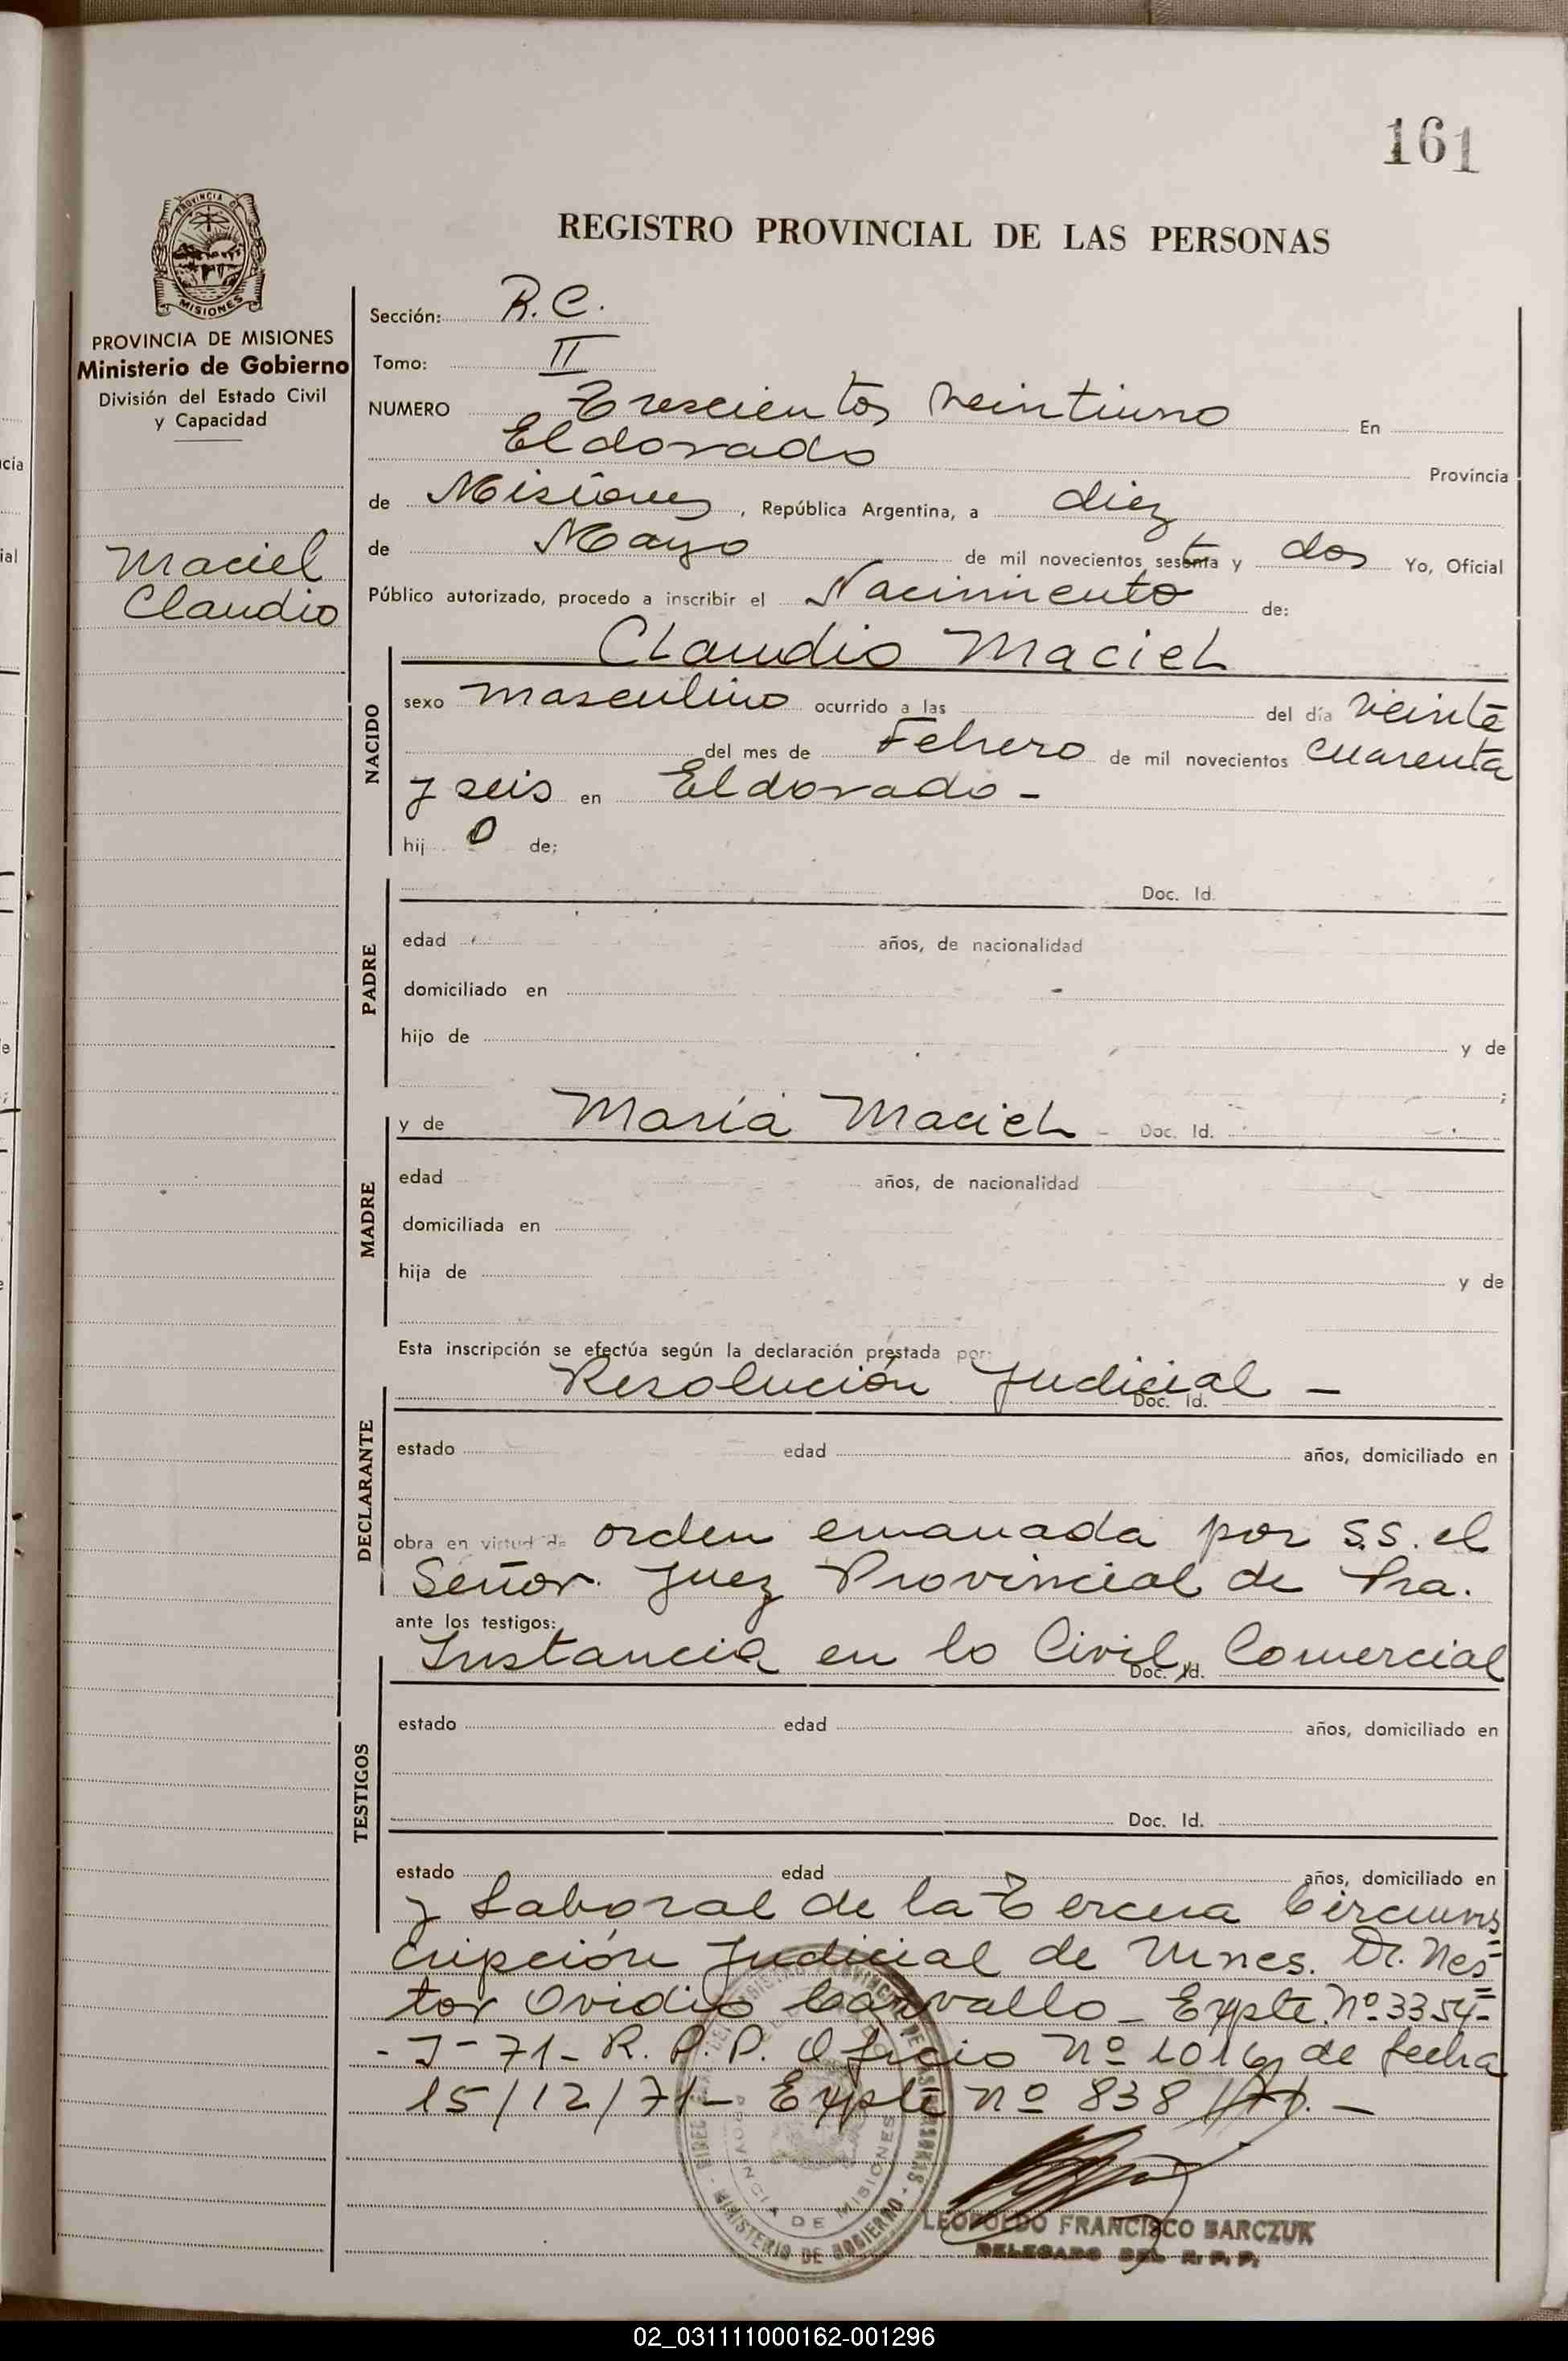 161
REGISTRO PROVINCIAL DE LAS PERSONAS
PROVINCIA DE MISIONES
Ministerio de Gobierno
División del Estado Civil
y Capacidad
Maciel
Claudio
Sección: R.C.
Tomo: II
NUMERO Trescientos veintiuno En
Eldorado Provincia
de Misiones, República Argentina, a diez
de Mayo de mil novecientos setenta y dos Yo, Oficial
Público autorizado, procedo a inscribir el Nacimiento de:
Claudio Maciel
NACIDO
sexo masculino ocurrido a las del día veinte
del mes de Febrero de mil novecientos cuarenta
y seis en Eldorado -
hij o de;
PADRE
Doc. Id.
edad años, de nacionalidad
domiciliado en
hijo de y de
;
MADRE
y de María Maciel - Doc. Id.
edad años, de nacionalidad
domiciliada en
hija de y de
Esta inscripción se efectúa según la declaración prestada por:
DECLARANTE
Resolución Judicial - Doc. Id.
estado edad años, domiciliado en
obra en virtud de orden emanada por S.S. el
Señor Juez Provincial de Pra.
ante los testigos:
Instancia en lo Civil, Comercial
Doc. Id.
TESTIGOS
estado edad años, domiciliado en
Doc. Id.
estado edad años, domiciliado en
y Laboral de la Tercera Circuns
cripción Judicial de Mnes. Dr. Nes=
tor Ovidio Carvallo - Expte. Nº 3354-
- J-71- R.P.P. Oficio Nº 1016 de fecha
15/12/71- Expte Nº 838 /71. -
PROVINCIA DE MISIONES
MINISTERIO DE GOBIERNO
LEOPOLDO FRANCISCO BARCZUK
DELEGADO DEL R. P. P.
02_031111000162-001296